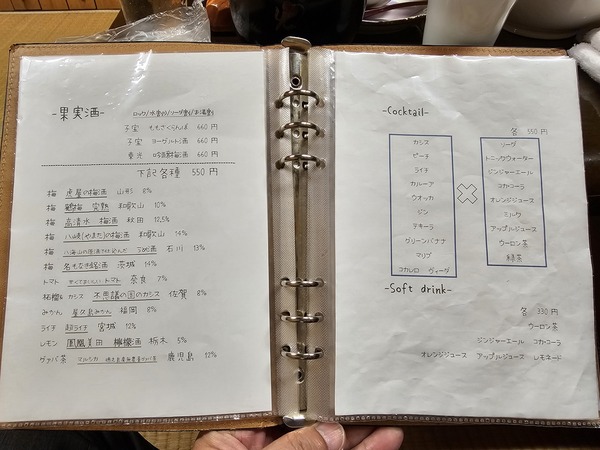 -果実酒-
ロック/水割り/ソーダ割り/お湯割り
子宝 ももさくらんぼ 660円
子宝 ヨーグルト酒 660円
東光 吟醸梅酒 660円
下記各種 550円
梅 虎屋の梅酒 山形 8%
梅 鶴梅 完熟 和歌山 10%
梅 高清水 梅酒 秋田 12.5%
梅 八岐(やまた)の梅酒 和歌山 14%
梅 八海山の原酒で仕込んだ うめ酒 石川 13%
梅 名もなき銘酒 茨城 14%
トマト 奈良 7%
カシス 不思議の国のカシス 佐賀 8%
みかん 屋久島みかん 福岡 8%
ライチ 超ライチ 宮城 12%
レモン 鳳凰美田 檸檬酒 栃木 5%
グァバ茶 マルシカ 鹿児島 12%
-Cocktail-
各 550円
カシス
ピーチ
ライチ
カルーア
ウオッカ
ジン
テキーラ
グリーンバナナ
マリブ
コカレロ ヴェーダ
×
ソーダ
トニックウォーター
ジンジャーエール
コカコーラ
オレンジジュース
ミルク
アップルジュース
ウーロン茶
緑茶
-Soft drink-
各 330円
ウーロン茶
ジンジャーエール コカコーラ
オレンジジュース アップルジュース レモネード